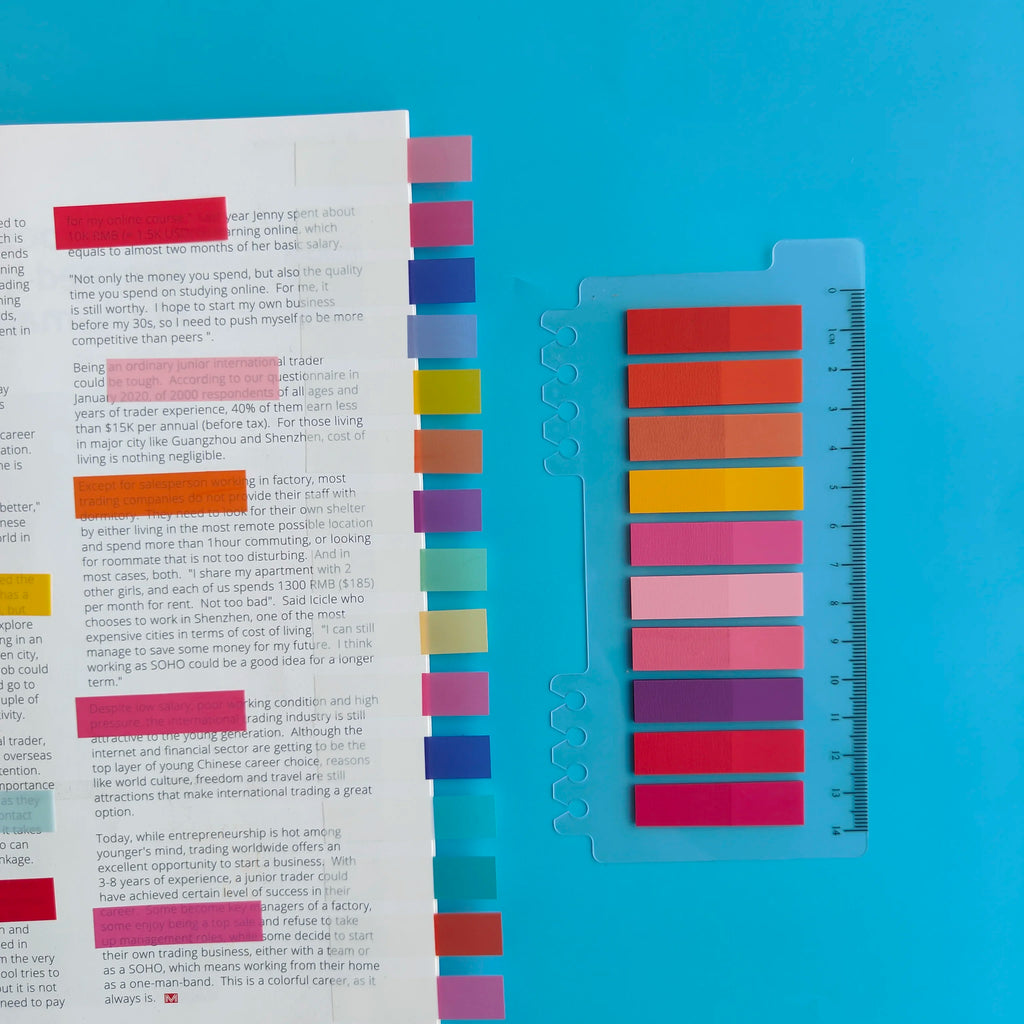 ed to
ch is
ends
ning
ading
ning
ds,
ent in
ay
s
career
ation.
ne is
better,"
nese
orld in
ed the
has a
, but
xplore
ng in an
en city,
ob could
d go to
uple of
ivity.
al trader,
overseas
tention.
mportance
as they
ontact
it takes
o can
nkage.
n and
ed in
m the very
ool tries to
out it is not
need to pay
for my online course," Last year Jenny spent about
10K RMB (≈ 1.5K USD) learning online, which
equals to almost two months of her basic salary.
"Not only the money you spend, but also the quality
time you spend on studying online. For me, it
is still worthy. I hope to start my own business
before my 30s, so I need to push myself to be more
competitive than peers ".
Being an ordinary junior international trader
could be tough. According to our questionnaire in
January 2020, of 2000 respondents of all ages and
years of trader experience, 40% of them earn less
than $15K per annual (before tax). For those living
in major city like Guangzhou and Shenzhen, cost of
living is nothing negligible.
Except for salesperson working in factory, most
trading companies do not provide their staff with
dormitory. They need to look for their own shelter
by either living in the most remote possible location
and spend more than 1hour commuting, or looking
for roommate that is not too disturbing. And in
most cases, both. "I share my apartment with 2
other girls, and each of us spends 1300 RMB ($185)
per month for rent. Not too bad". Said Icicle who
chooses to work in Shenzhen, one of the most
expensive cities in terms of cost of living. "I can still
manage to save some money for my future. I think
working as SOHO could be a good idea for a longer
term."
Despite low salary, poor working condition and high
pressure, the international trading industry is still
attractive to the young generation. Although the
internet and financial sector are getting to be the
top layer of young Chinese career choice, reasons
like world culture, freedom and travel are still
attractions that make international trading a great
option.
Today, while entrepreneurship is hot among
younger's mind, trading worldwide offers an
excellent opportunity to start a business. With
3-8 years of experience, a junior trader could
have achieved certain level of success in their
career. Some become key managers of a factory,
some enjoy being a top sale and refuse to take
up management roles, while some decide to start
their own trading business, either with a team or
as a SOHO, which means working from their home
as a one-man-band. This is a colorful career, as it
always is. M
0
1cm
2
3
4
5
6
7
8
9
10
11
12
13
14